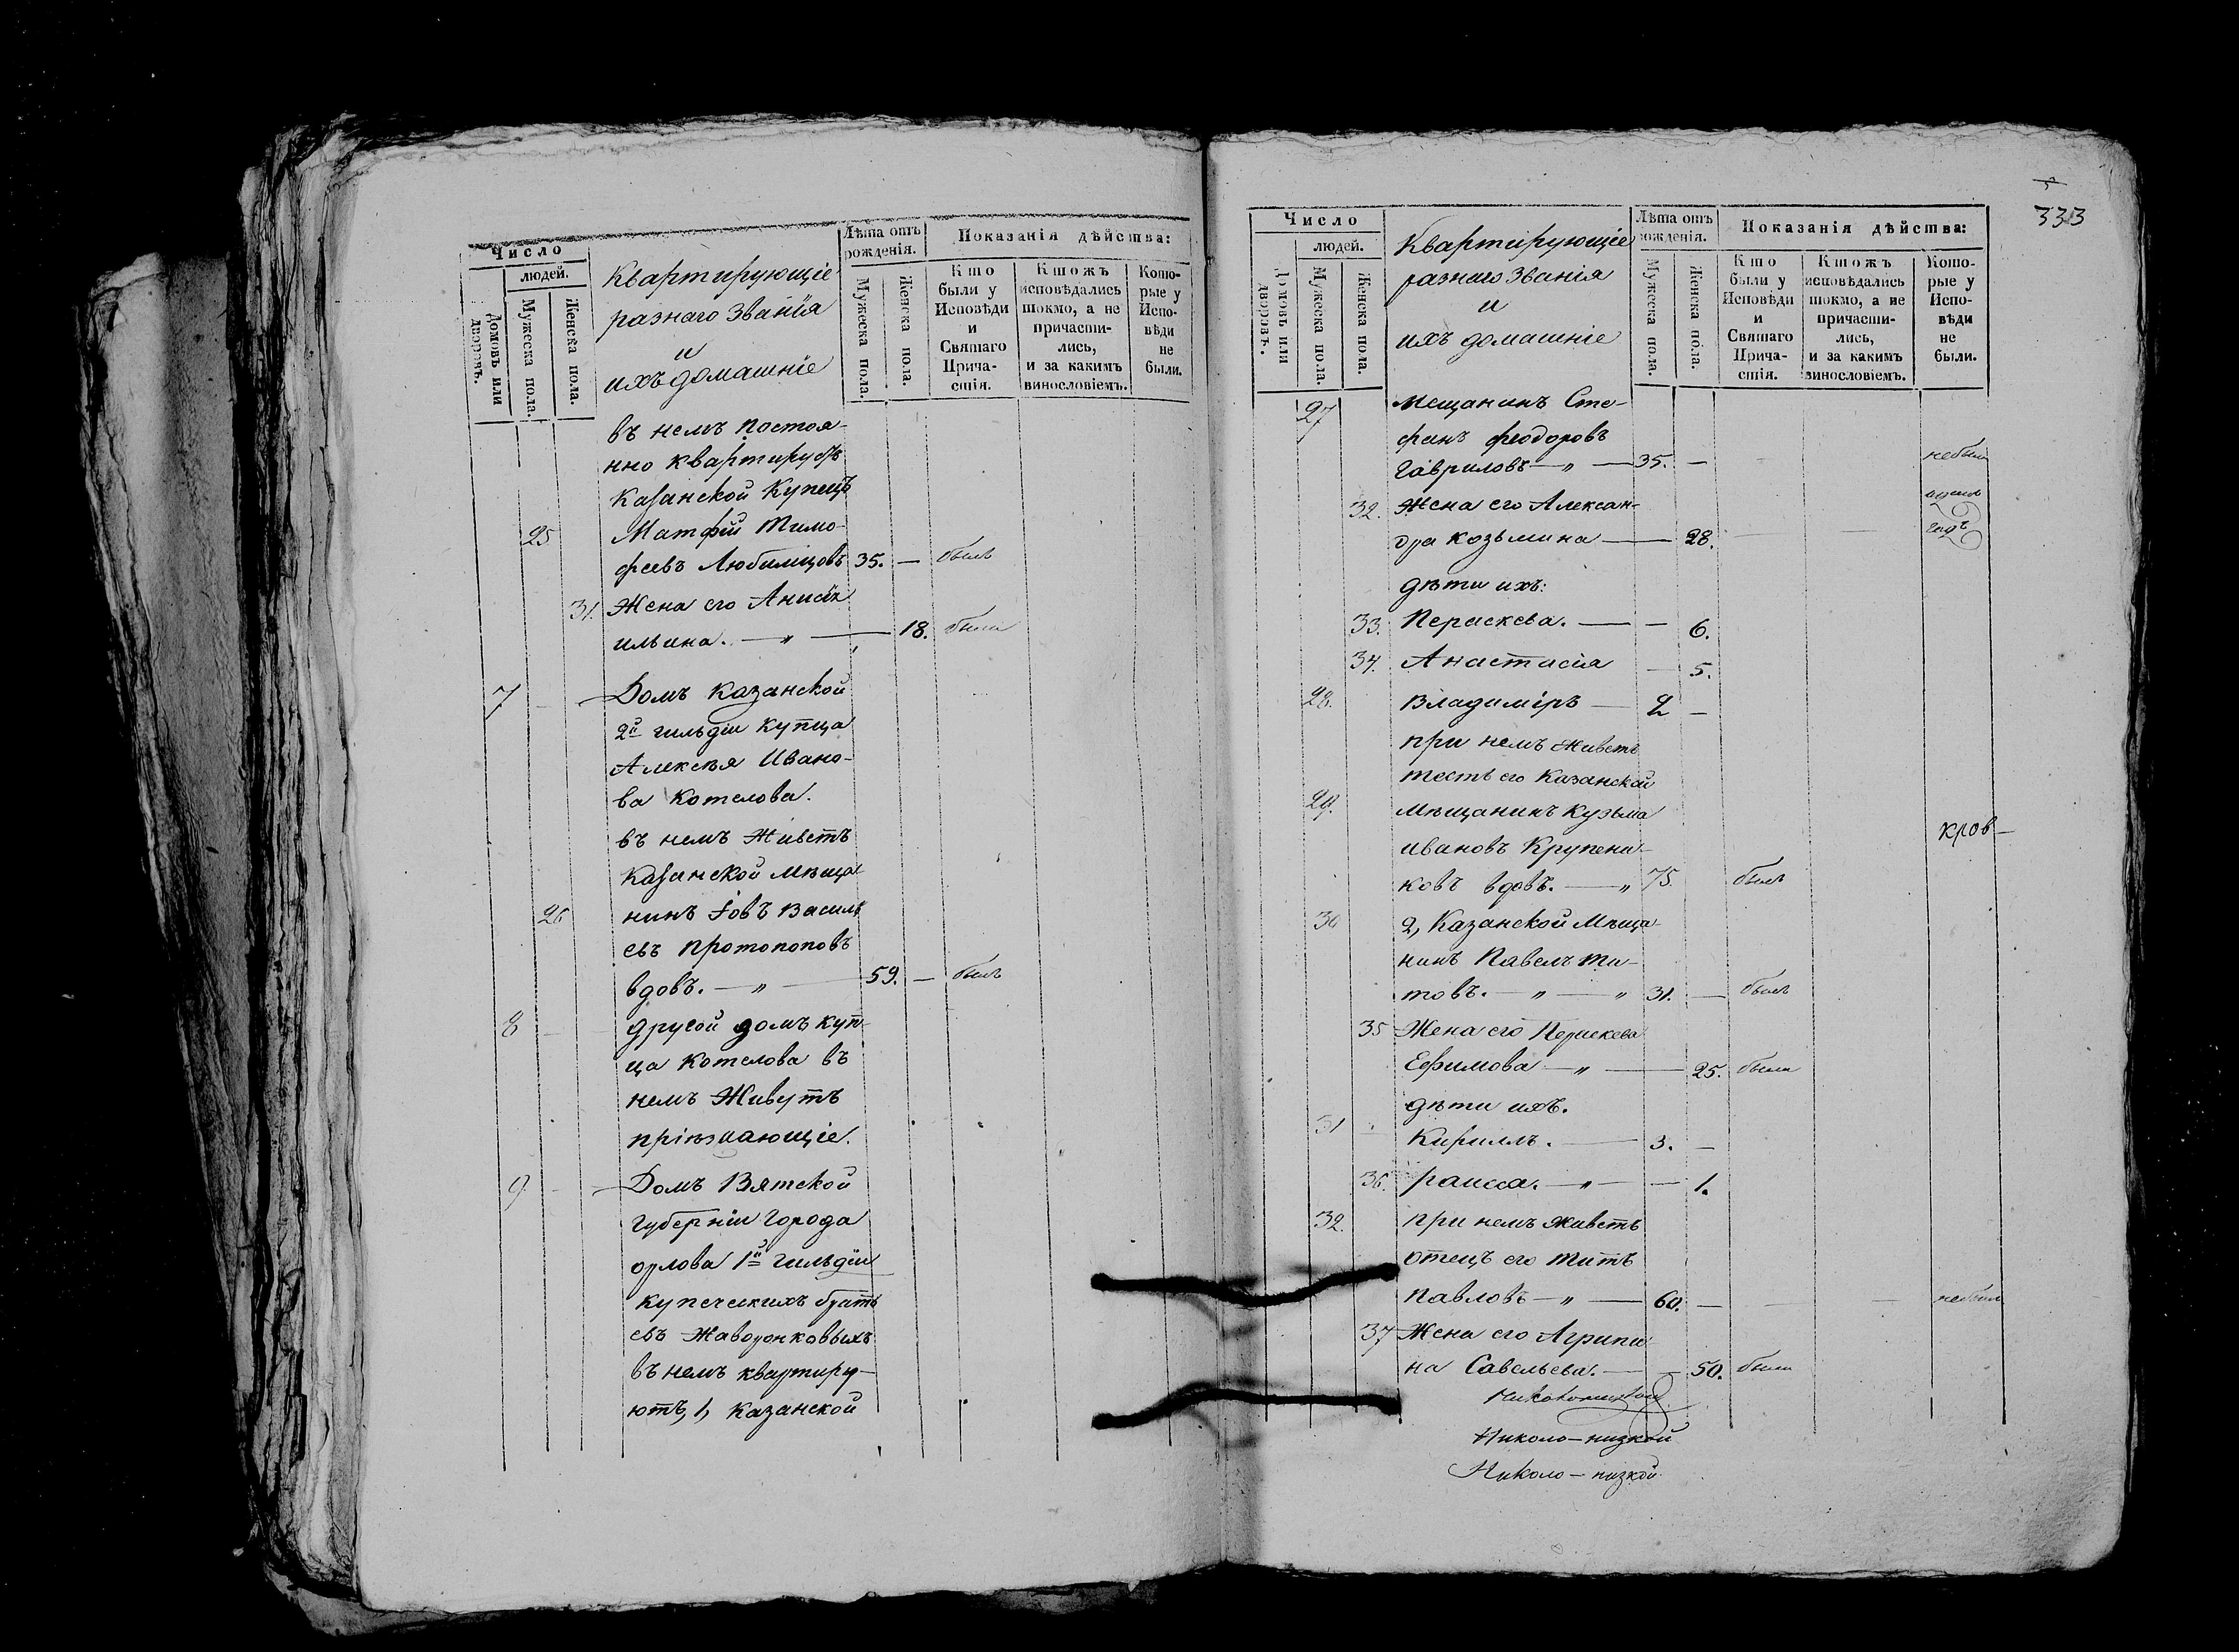 Число
людей.
Домовъ или дворовъ.
Мужеска пола.
Женска пола.
Квартирующіе
разнаго Званія
и
ихъ домашніе
Лѣта отъ
рожденія.
Мужеска пола.
Женска пола.
Показанія дѣйства:
Кто
были у
Исповѣди
и
Святаго
Прича-
стія.
Ктожъ
исповѣдались
токмо, а не
причасти-
лись,
и за какимъ
винословіемъ.
Кото-
рые у
Испо-
вѣди
не
были.
въ немъ постоя-
нно квартируетъ
Казанской Купецъ
25 Матфій Тимо-
феевъ Любимцовъ 35. — былъ
31. Жена его Анисія
ильина. — „ — 18. была
7 — Домъ Казанской
2й гильдіи купца
Алексѣя Ивано-
ва Котелова.
въ немъ Живетъ
Казанской мѣща
26 нинъ Іовъ Василь
евъ Протопоповъ
вдовъ. — „ — 59. — былъ
8 — другой домъ куп-
ца Котелова въ
немъ Живутъ
пріезжающіе.
9 — Домъ Вятской
Губерніи Города
орлова 1й Гильдіи
купеческихъ брать
евъ Жаворонковыхъ
въ немъ квартиру-
ютъ, 1, Казанской
333
Число
людей.
Домовъ или дворовъ.
Мужеска пола.
Женска пола.
Квартирующіе
разнаго Званія
и
ихъ домашніе
Лѣта отъ
рожденія.
Мужеска пола.
Женска пола.
Показанія дѣйства:
Кто
были у
Исповѣди
и
Святаго
Прича-
стія.
Ктожъ
исповѣдались
токмо, а не
причасти-
лись,
и за какимъ
винословіемъ.
Кото-
рые у
Испо-
вѣди
не
были.
27 мещанинъ Сте-
фанъ феодоровъ
Гавриловъ — „ — 35. — небыли
32. Жена его Алексан-
дра козьмина — 28. — — годъ
дѣти ихъ:
33. Пераскева. — — 6.
34. Анастасія — 5.
28. Владиміръ — 2 —
при немъ живетъ
тесть его Казанской
29. Мѣщанинъ Кузьма
ивановъ Крупени-
кров-
ковъ вдовъ. — „ 75. былъ
30 2, Казанской Мѣща-
нинъ Павелъ Ти-
товъ. — „ — „ 31. — былъ
35 Жена его Пераскева
Ефимова — „ — 25. была
дѣти ихъ.
31 Кириллъ. — 3. —
36. раисса. — „ — — 1.
32. при немъ живетъ
отецъ его Титъ
Павловъ — „ — 60. — — небыл
37 Жена его Агрипи
на Савельева. — — 50. была
Николо-низкой
Николо-низкой